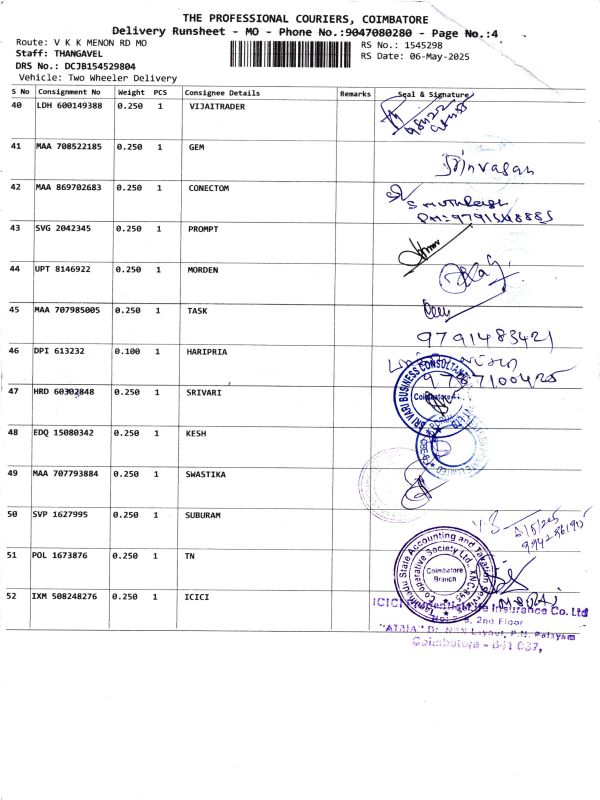 THE PROFESSIONAL COURIERS, COIMBATORE
Delivery Runsheet - MO - Phone No.:9047080280 - Page No.:4
Route: V K K MENON RD MO
Staff: THANGAVEL
DRS No.: DCJB154529804
Vehicle: Two Wheeler Delivery
RS No.: 1545298
RS Date: 06-May-2025
S No Consignment No Weight PCS Consignee Details Remarks Seal & Signature
40 LDH 600149388 0.250 1 VIJAITRADER
41 MAA 708522185 0.250 1 GEM
Srinvasan
42 MAA 869702683 0.250 1 CONECTOM
43 SVG 2042345 0.250 1 PROMPT
44 UPT 8146922 0.250 1 MORDEN
45 MAA 707985005 0.250 1 TASK
9791483421
46 DPI 613232 0.100 1 HARIPRIA
47 HRD 60302848 0.250 1 SRIVARI
SRI VARI BUSINESS CONSULTANCY
Coimbatore
48 EDQ 15080342 0.250 1 KESH
49 MAA 707793884 0.250 1 SWASTIKA
50 SVP 1627995 0.250 1 SUBURAM
51 POL 1673876 0.250 1 TN
Tamilnadu State Accounting and Taxation Services
Co-operative Society Ltd., XNC
Coimbatore
Branch
52 IXM 508248276 0.250 1 ICICI
ICICI Prudential Life Insurance Co. Ltd
2nd Floor
Layout, P.N. Palayam
Coimbatore - 641 037,